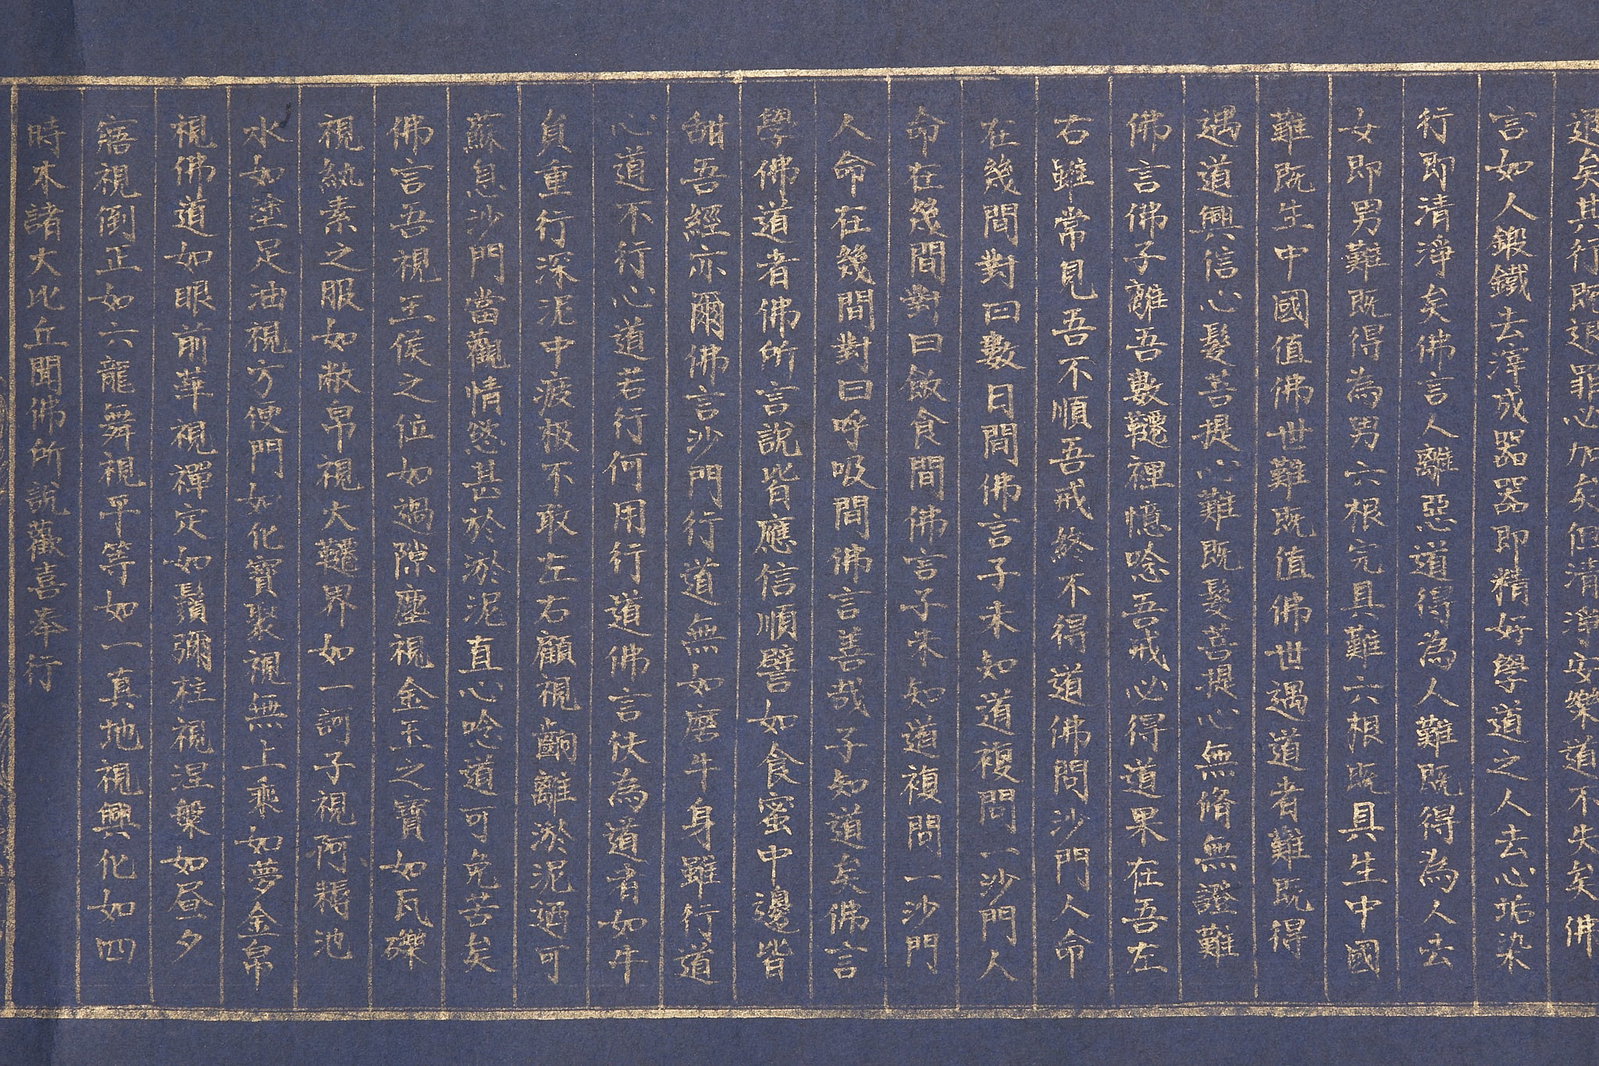 退矣其行既退罪必加矣但清淨安樂道不失矣佛
言如人鍛鐵去滓成器器即精好學道之人去心垢染
行即清淨矣佛言人離惡道得為人難既得為人去
女即男難既得為男六根完具難六根既具生中國
難既生中國值佛世難既值佛世遇道者難既得
遇道興信心難既興信心發菩提心難既發菩提心無脩無證難
佛言佛子離吾數千里憶念吾戒必得道果在吾左
右雖常見吾不順吾戒終不得道佛問沙門人命
在幾間對曰數日間佛言子未知道複問一沙門人
命在幾間對曰飯食間佛言子未知道複問一沙門
人命在幾間對曰呼吸間佛言善哉子知道矣佛言
學佛道者佛所言說皆應信順譬如食蜜中邊皆
甜吾經亦爾佛言沙門行道無如磨牛身雖行道
心道不行心道若行何用行道佛言夫為道者如牛
負重行深泥中疲極不敢左右顧視齣離淤泥迺可
蘇息沙門當觀情慾甚於淤泥直心唸道可免苦矣
佛言吾視王侯之位如過隙塵視金玉之寶如瓦礫
視紈素之服如敝帛視大韆界如一訶子視阿耨池
水如塗足油視方便門如化寶聚視無上乘如夢金帛
視佛道如眼前華視禪定如須彌柱視涅槃如晝夕
寤視倒正如六龍舞視平等如一真地視興化如四
時木諸大比丘聞佛所說歡喜奉行